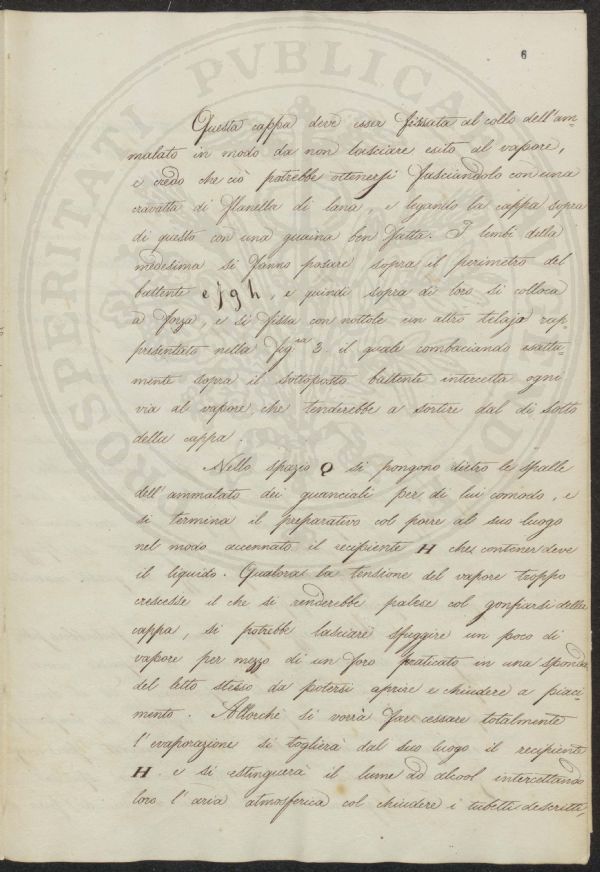 6
Questa cappa deve esser fissata al collo dell'am-
malato in modo da non lasciare esito al vapore,
e credo che ciò potrebbe ottenersi fasciandolo con una
cravatta di flanella di lana, e legando la cappa sopra
di questo con una guaina ben fatta. I lembi della
medesima si fanno posare sopra il perimetro del
battente e f g h, e quindi sopra di loro si colloca
a forza, e si fissa con nottole un altro telajo rap-
presentato nella Fig.ra 3. il quale combaciando esatta-
mente sopra il sottoposto battente intercetta ogni
via al vapore che tenderebbe a sortire dal di sotto
della cappa.
Nello spazio Q si pongono dietro le spalle
dell'ammalato dei guanciali per di lui comodo, e
si termina il preparativo col porre al suo luogo
nel modo accennato il recipiente H che contener deve
il liquido. Qualora la tensione del vapore troppo
crescesse il che si renderebbe palese col gonfiarsi della
cappa, si potrebbe lasciare sfuggire un poco di
vapore per mezzo di un foro praticato in una sponda
del letto stesso da potersi aprire e chiudere a piaci-
mento. Allorché si vorrà far cessare totalmente
l'evaporazione si toglierà dal suo luogo il recipiente
H. e si estinguerà il lume ad alcool intercettando
loro l'aria atmosferica col chiudere i tubetti descritti,
PROSPERITATI PVBLICA